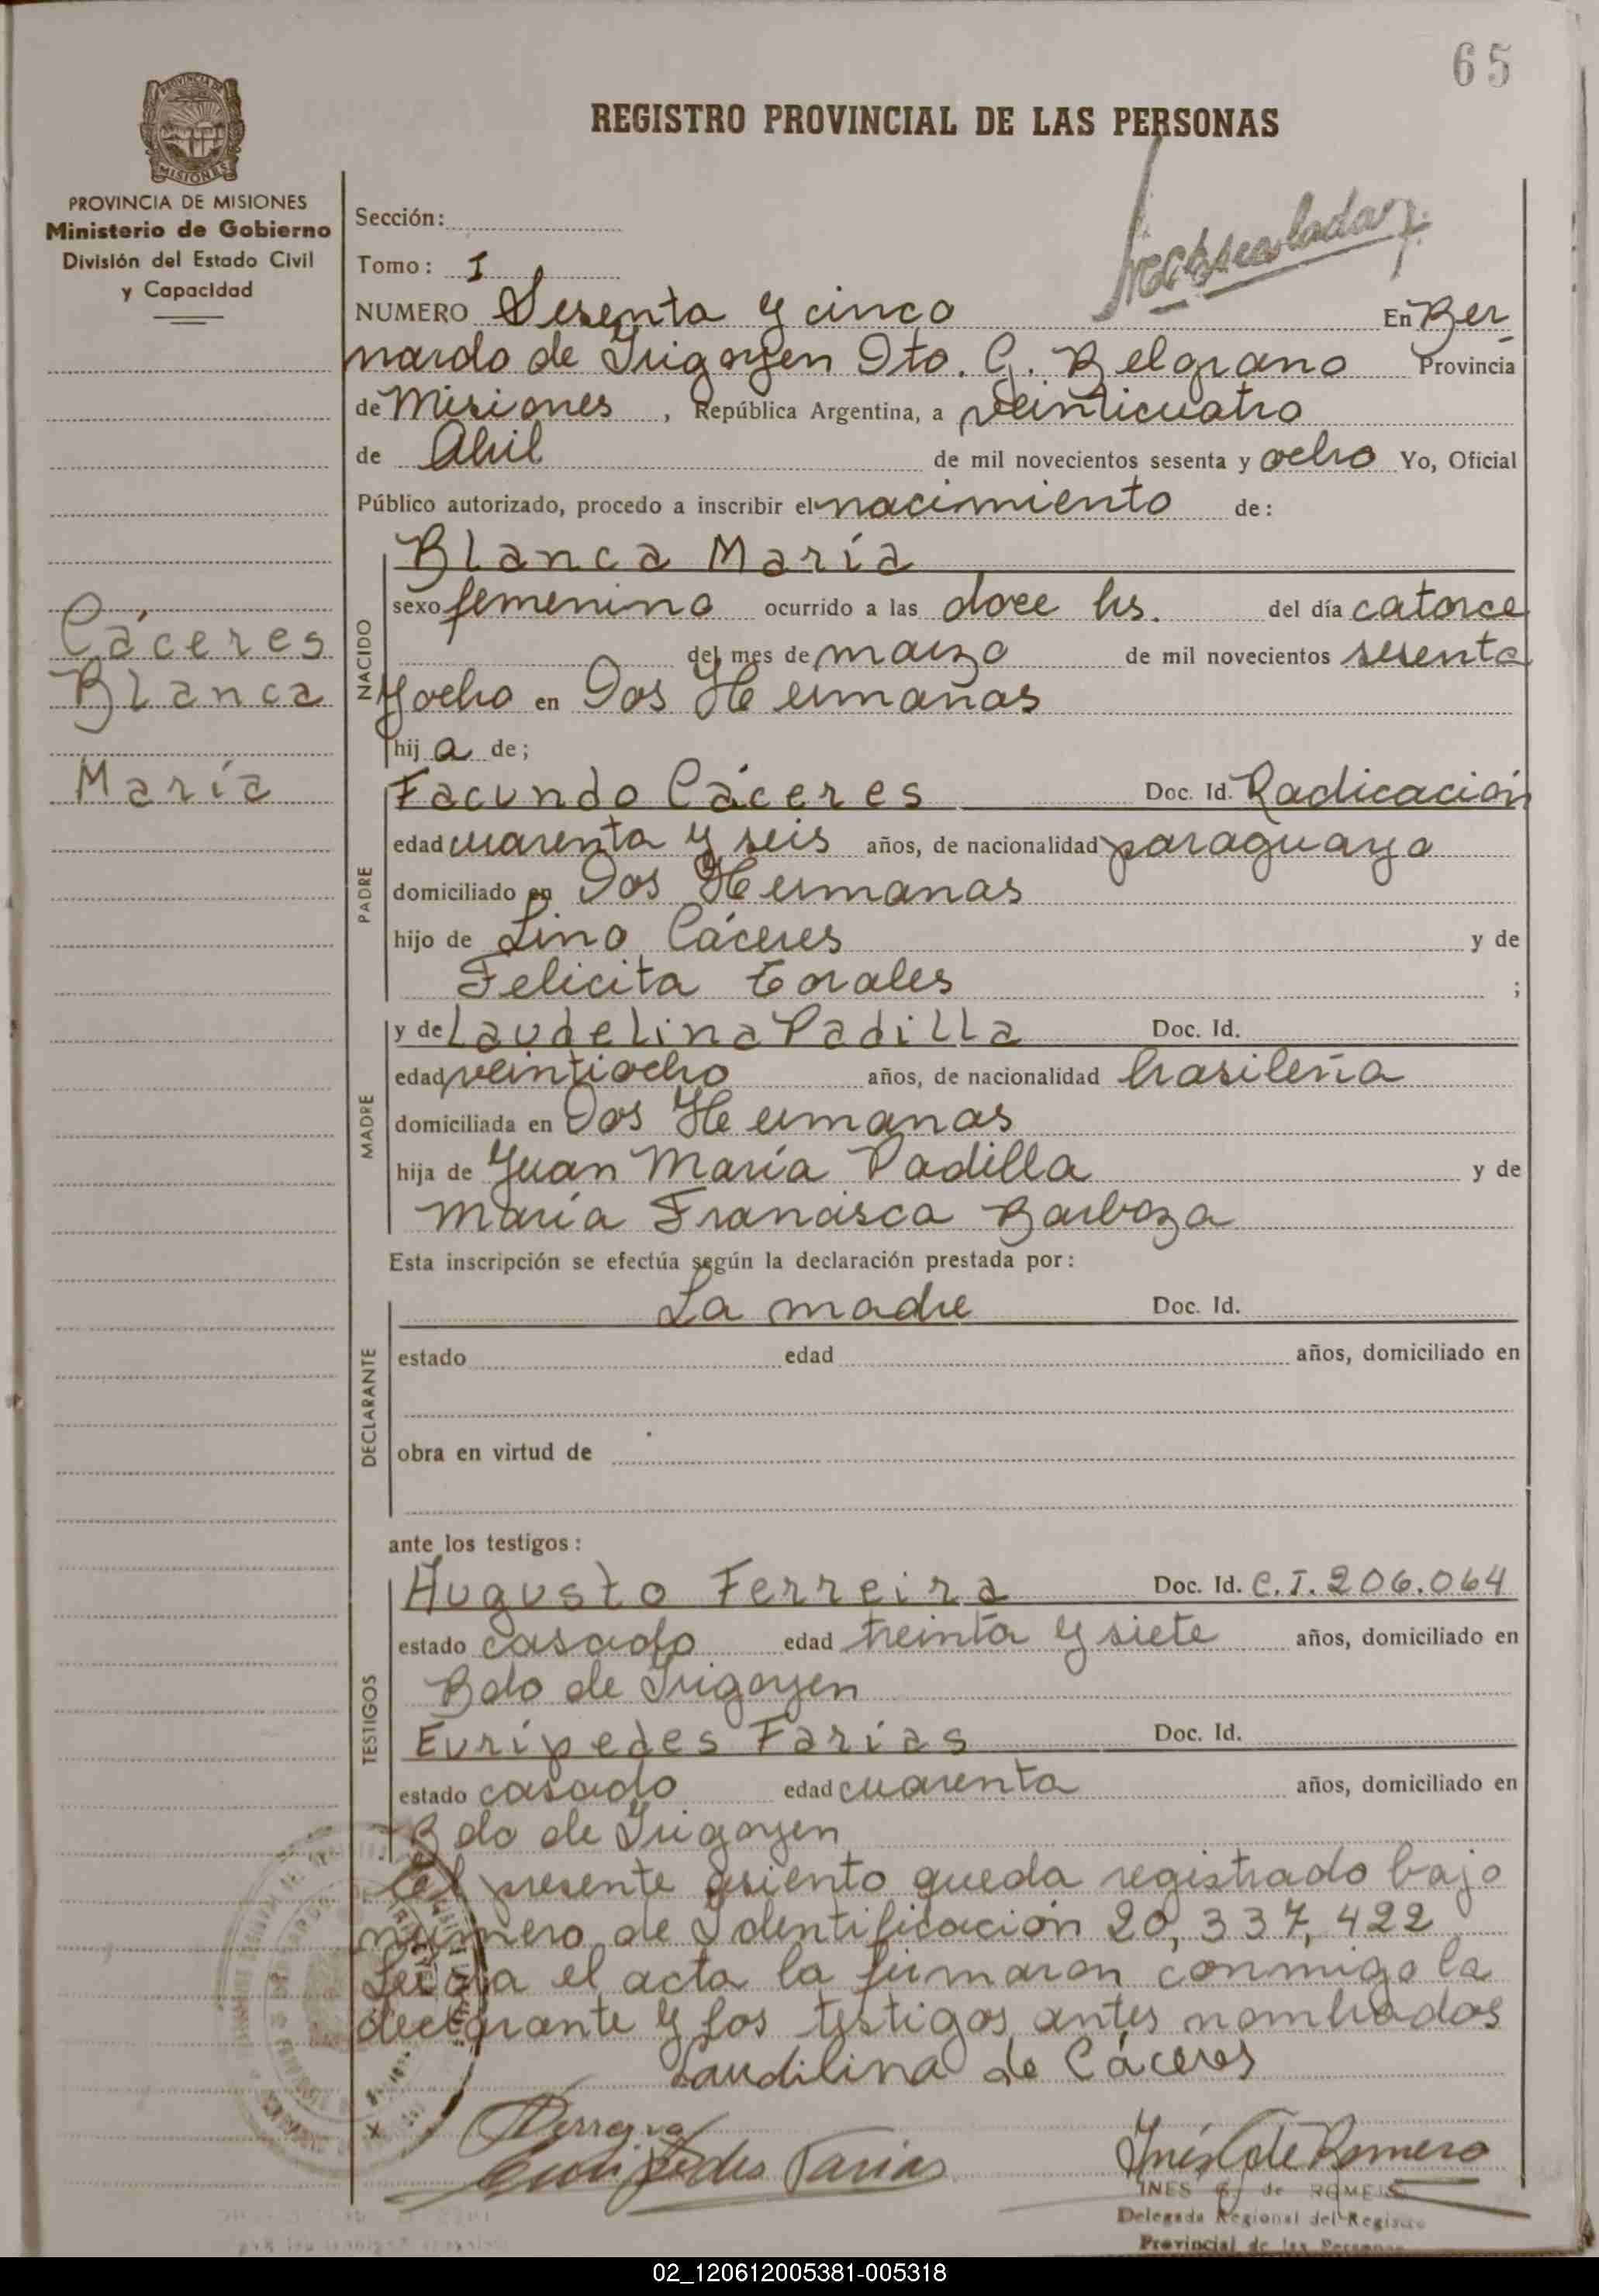 65
REGISTRO PROVINCIAL DE LAS PERSONAS
PROVINCIA DE MISIONES
Ministerio de Gobierno
División del Estado Civil
y Capacidad
Sección:
Tomo: I
NUMERO Sesenta y cinco En Ber-
nardo de Irigoyen Dto. G. Belgrano Provincia
de Misiones, República Argentina, a veinticuatro
de Abril de mil novecientos sesenta y ocho Yo, Oficial
Público autorizado, procedo a inscribir el nacimiento de:
Cáceres
Blanca
María
NACIDO
Blanca María
sexo femenino ocurrido a las doce hs. del día catorce
del mes de marzo de mil novecientos sesenta
y ocho en Dos Hermanas
hij a de;
PADRE
Facundo Cáceres Doc. Id. Radicación
edad cuarenta y seis años, de nacionalidad paraguaya
domiciliado en Dos Hermanas
hijo de Lino Cáceres y de
Felicita Torales ;
MADRE
y de Laudelina Padilla Doc. Id.
edad veintiocho años, de nacionalidad brasileña
domiciliada en Dos Hermanas
hija de Juan María Padilla y de
María Francisca Barboza
Esta inscripción se efectúa según la declaración prestada por:
DECLARANTE
La madre Doc. Id.
estado edad años, domiciliado en
obra en virtud de
ante los testigos:
TESTIGOS
Augusto Ferreira Doc. Id. C.I. 206.064
estado casado edad treinta y siete años, domiciliado en
Bdo de Irigoyen
Eurípedes Farías Doc. Id.
estado casado edad cuarenta años, domiciliado en
Bdo de Irigoyen
El presente asiento queda registrado bajo
número de Identificación 20,337,422
Leída el acta la firmaron conmigo la
declarante y los testigos antes nombrados
Laudilina de Cáceres
Euripedes Farias
Inés de Romero
INES G. de ROMERO
Delegada Regional del Registro
Provincial de las Personas
02_120612005381-005318